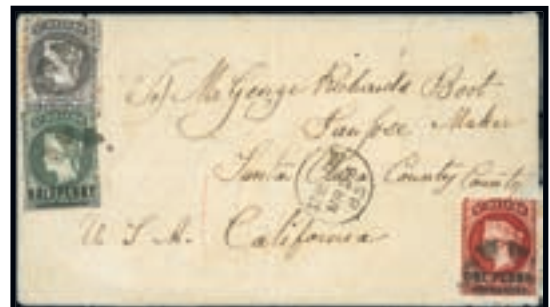 To) Mr George Richards Boot
San Jose Maker
Santa Clara County County
U S A. California
HALFPENNY
ONE PENNY